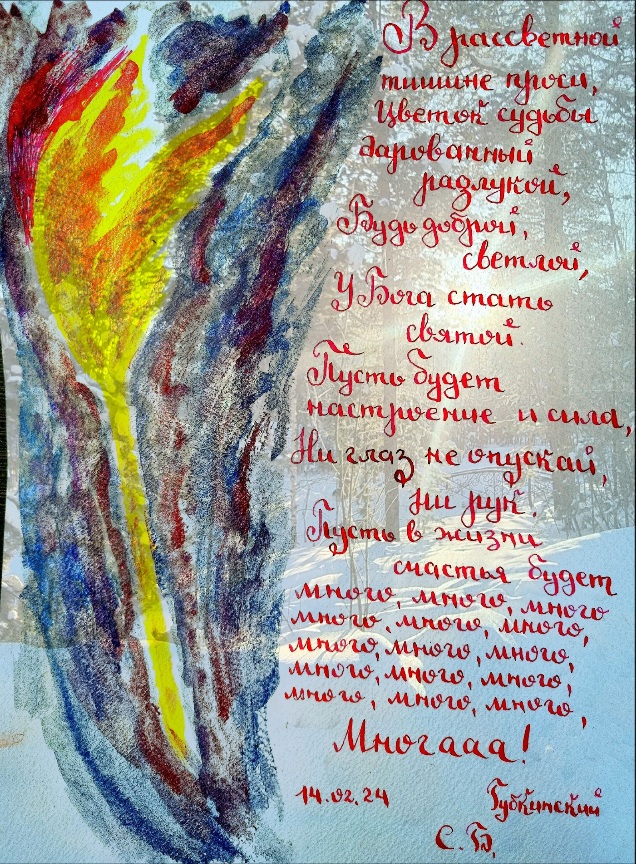 В рассветной
тишине проси,
Цветок судьбы
дарованный
разлукой,
Будь доброй,
светлой,
У Бога стать
святой.
Пусть будет
настроение и сила,
Ни глаз не опускай,
ни рук.
Пусть в жизни
счастья будет
много, много, много
много, много, много,
много, много, много,
много, много, много,
много, много, много,
Многааа!
14.02.24 Губкинский
С.Б,